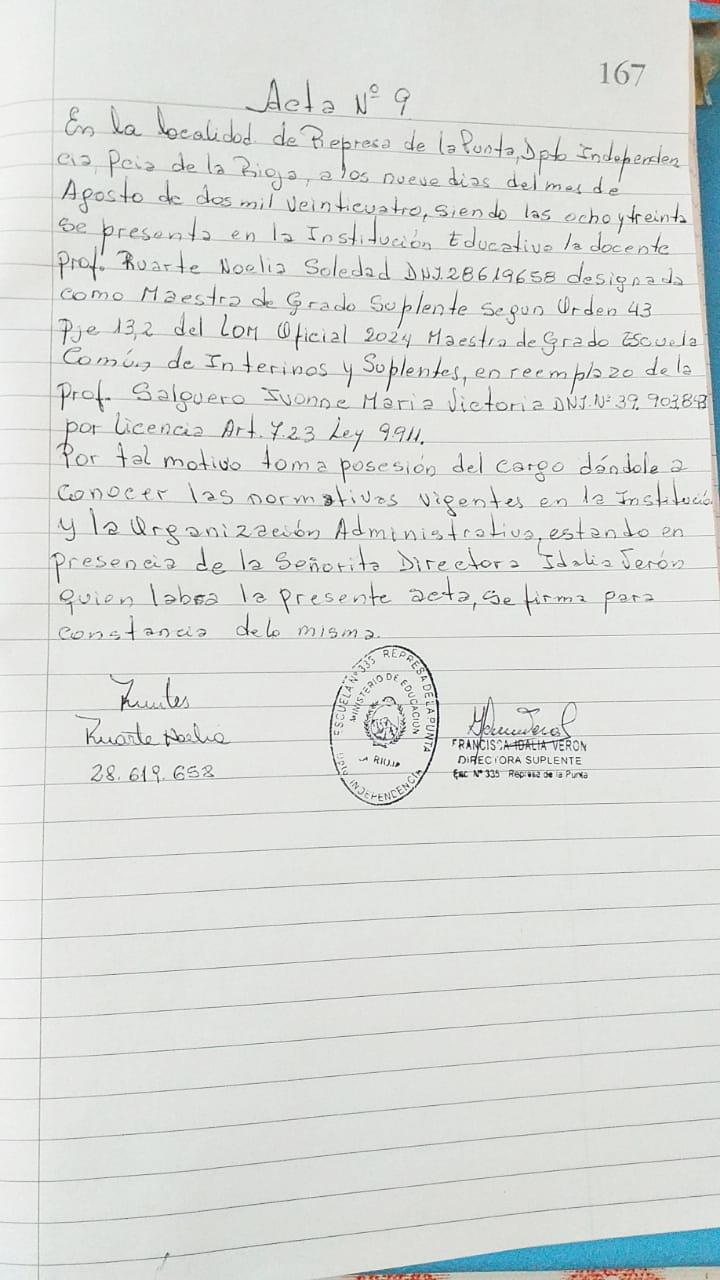 167
Acta Nº 9
En la localidad de Represa de la Punta, Dpto Independen
cia, Pcia de la Rioja, a los nueve dias del mes de
Agosto de dos mil veinticuatro, siendo las ocho y treinta
se presenta en la Institución Educativa la docente
Prof. Ruarte Noelia Soledad DNI 28619658 designada
como Maestra de Grado Suplente segun Orden 43
Pje 13,2 del LOM Oficial 2024 Maestra de Grado Escuela
Común de Interinos y Suplentes, en reemplazo de la
Prof. Salguero Ivonne Maria Victoria DNI. Nº 39.903848
por Licencia Art. 7.23 Ley 9.911.
Por tal motivo toma posesión del cargo dándole a
conocer las normativas vigentes en la Institució
y la Organización Administrativa, estando en
presencia de la Señorita Directora Idalia Verón
quien labra la presente acta, se firma para
constancia dela misma.
Ruarte Noelia
28.619.658
ESCUELA Nº 335 REPRESA DE LA PUNTA
MINISTERIO DE EDUCACION
LA RIOJA
DPTO INDEPENDENCIA
FRANCISCA IDALIA VERON
DIRECTORA SUPLENTE
Esc Nº 335 Represa de la Punta